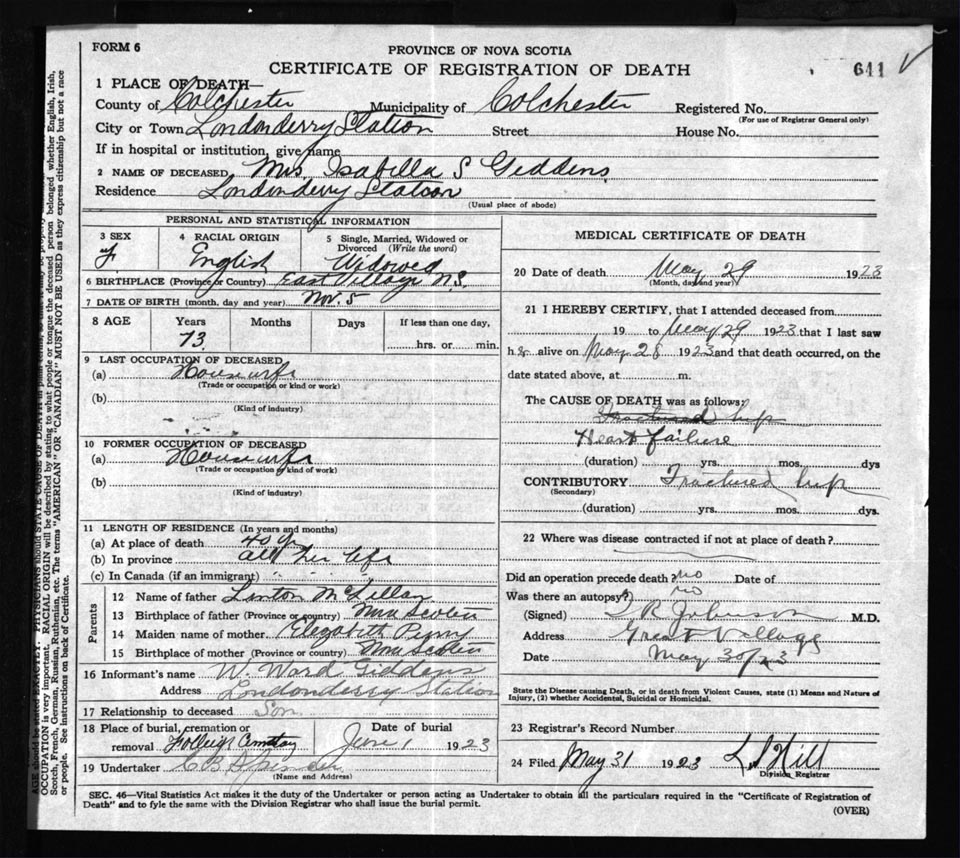 FORM 6
PROVINCE OF NOVA SCOTIA
CERTIFICATE OF REGISTRATION OF DEATH
641
1 PLACE OF DEATH—
County of Colchester Municipality of Colchester Registered No.
(For use of Registrar General only)
City or Town Londonderry Station Street House No.
If in hospital or institution, give name
2 NAME OF DECEASED Mrs. Isabella S Giddens
Residence Londonderry Station
(Usual place of abode)
PERSONAL AND STATISTICAL INFORMATION
3 SEX F
4 RACIAL ORIGIN English
5 Single, Married, Widowed or Divorced (Write the word) Widowed
6 BIRTHPLACE (Province or Country) East Village N.S.
7 DATE OF BIRTH (month, day and year) Nov. 5
8 AGE Years Months Days If less than one day,
73. hrs. or min.
9 LAST OCCUPATION OF DECEASED
(a) Housewife
(Trade or occupation or kind or work)
(b)
(Kind of industry)
10 FORMER OCCUPATION OF DECEASED
(a) Housewife
(Trade or occupation or kind of work)
(b)
(Kind of industry)
11 LENGTH OF RESIDENCE (In years and months)
(a) At place of death 40 yr
(b) In province all her life
(c) In Canada (if an immigrant)
Parents
12 Name of father McLellan
13 Birthplace of father (Province or country) Nova Scotia
14 Maiden name of mother Elizabeth
15 Birthplace of mother (Province or country) Nova Scotia
16 Informant's name W. Ward Giddens
Address Londonderry Station
17 Relationship to deceased Son
18 Place of burial, cremation or removal Cemetery
Date of burial June 1 1923
19 Undertaker C B
(Name and Address)
MEDICAL CERTIFICATE OF DEATH
20 Date of death May 29 1923
(Month, day and year)
21 I HEREBY CERTIFY, that I attended deceased from
19 to May 29 1923 that I last saw
her alive on May 28 1923 and that death occurred, on the
date stated above, at m.
The CAUSE OF DEATH was as follows:
Fractured hip
Heart failure
(duration) yrs. mos. dys
CONTRIBUTORY Fractured hip
(Secondary)
(duration) yrs. mos. dys.
22 Where was disease contracted if not at place of death?
Did an operation precede death? no Date of
Was there an autopsy? no
(Signed) Johnson M.D.
Address Great Village
Date May 30/23
State the Disease causing Death, or in death from Violent Causes, state (1) Means and Nature of
Injury, (2) whether Accidental, Suicidal or Homicidal.
23 Registrar's Record Number
24 Filed May 31 1923 Hill
Division Registrar
SEC. 46—Vital Statistics Act makes it the duty of the Undertaker or person acting as Undertaker to obtain all the particulars required in the "Certificate of Registration of
Death" and to fyle the same with the Division Registrar who shall issue the burial permit.
(OVER)
OCCUPATION is very important. RACIAL ORIGIN will be described by stating to what people or tongue the deceased person belonged whether English, Irish,
Scotch, French, German, Russian, Ruthenian, etc. The terms "AMERICAN" or "CANADIAN" MUST NOT BE USED as they express citizenship but not a race
or people. See instructions on back of Certificate.